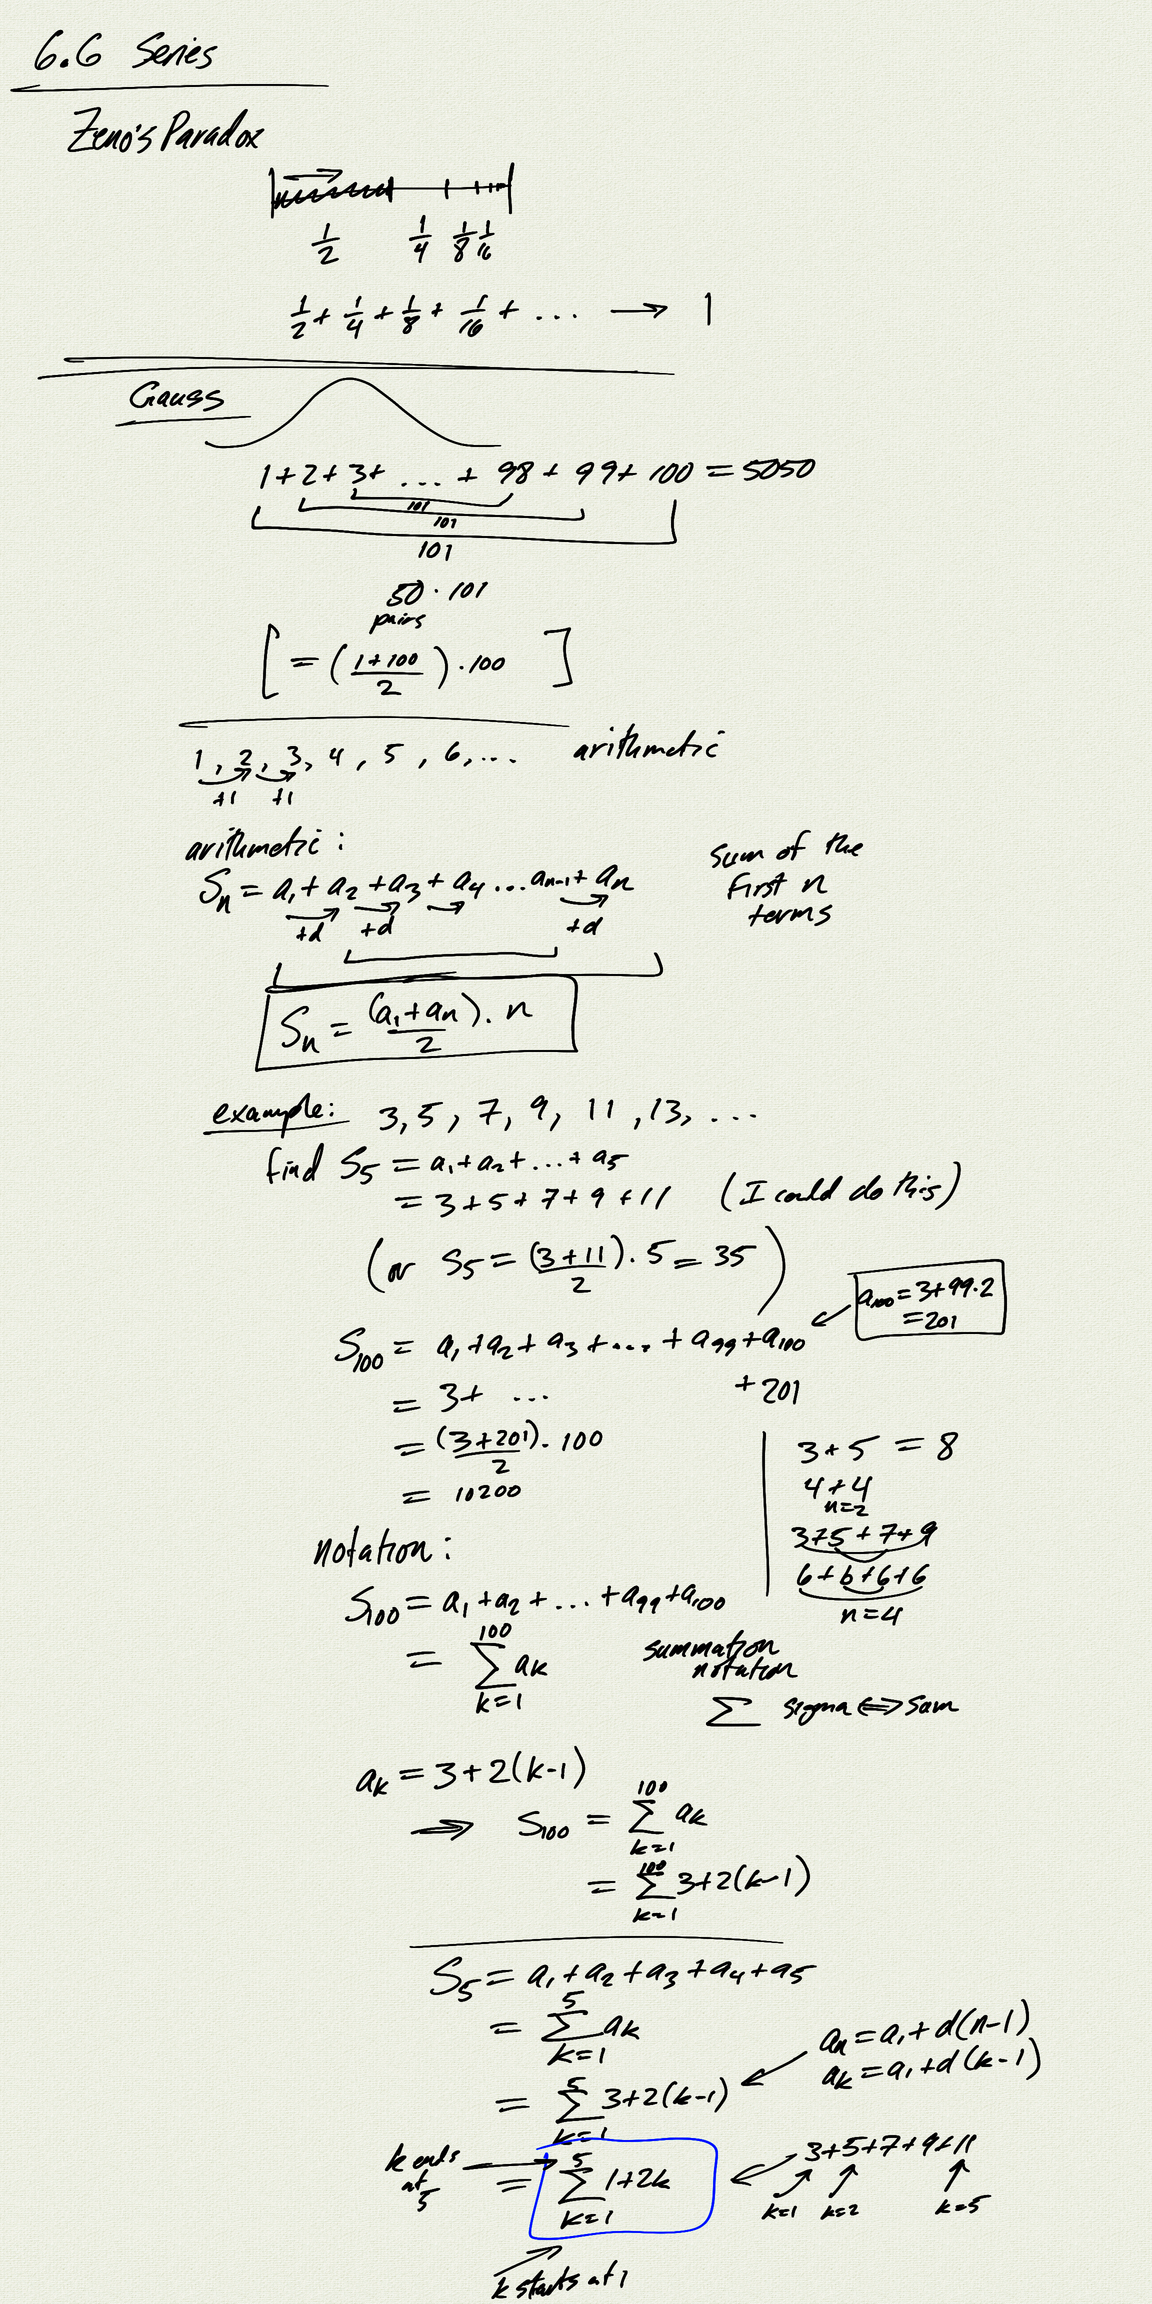 6.6 Series
Zeno's Paradox
1/2 1/4 1/8 1/16
1/2 + 1/4 + 1/8 + 1/16 + ... → 1
Gauss
1+2+3+ ... + 98 + 99 + 100 = 5050
101
101
101
50 · 101
pairs
[ = (1+100/2) · 100 ]
1, 2, 3, 4, 5, 6, ... arithmetic
+1 +1
arithmetic:
sum of the
first n
terms
Sn = a1 + a2 + a3 + a4 ... an-1 + an
+d +d +d
Sn = (a1+an)/2 · n
example: 3, 5, 7, 9, 11, 13, ...
find S5 = a1 + a2 + ... + a5
= 3+5+7+9+11 (I could do this)
(or S5 = (3+11)/2 · 5 = 35)
a100 = 3+99·2
= 201
S100 = a1 + a2 + a3 + ... + a99 + a100
= 3 + ... + 201
= (3+201)/2 · 100
= 10200
3+5 = 8
4+4
n=2
3+5+7+9
6+6+6+6
n=4
notation:
S100 = a1 + a2 + ... + a99 + a100
= 100 ∑ k=1 ak
summation
notation
∑ sigma ⟺ sum
ak = 3+2(k-1)
⇒ S100 = 100 ∑ k=1 ak
= 100 ∑ k=1 3+2(k-1)
S5 = a1 + a2 + a3 + a4 + a5
= 5 ∑ k=1 ak
an = a1 + d(n-1)
ak = a1 + d(k-1)
= 5 ∑ k=1 3+2(k-1)
k ends
at
5
= 5 ∑ k=1 1+2k
3+5+7+9+11
k=1 k=2 k=5
k starts at 1